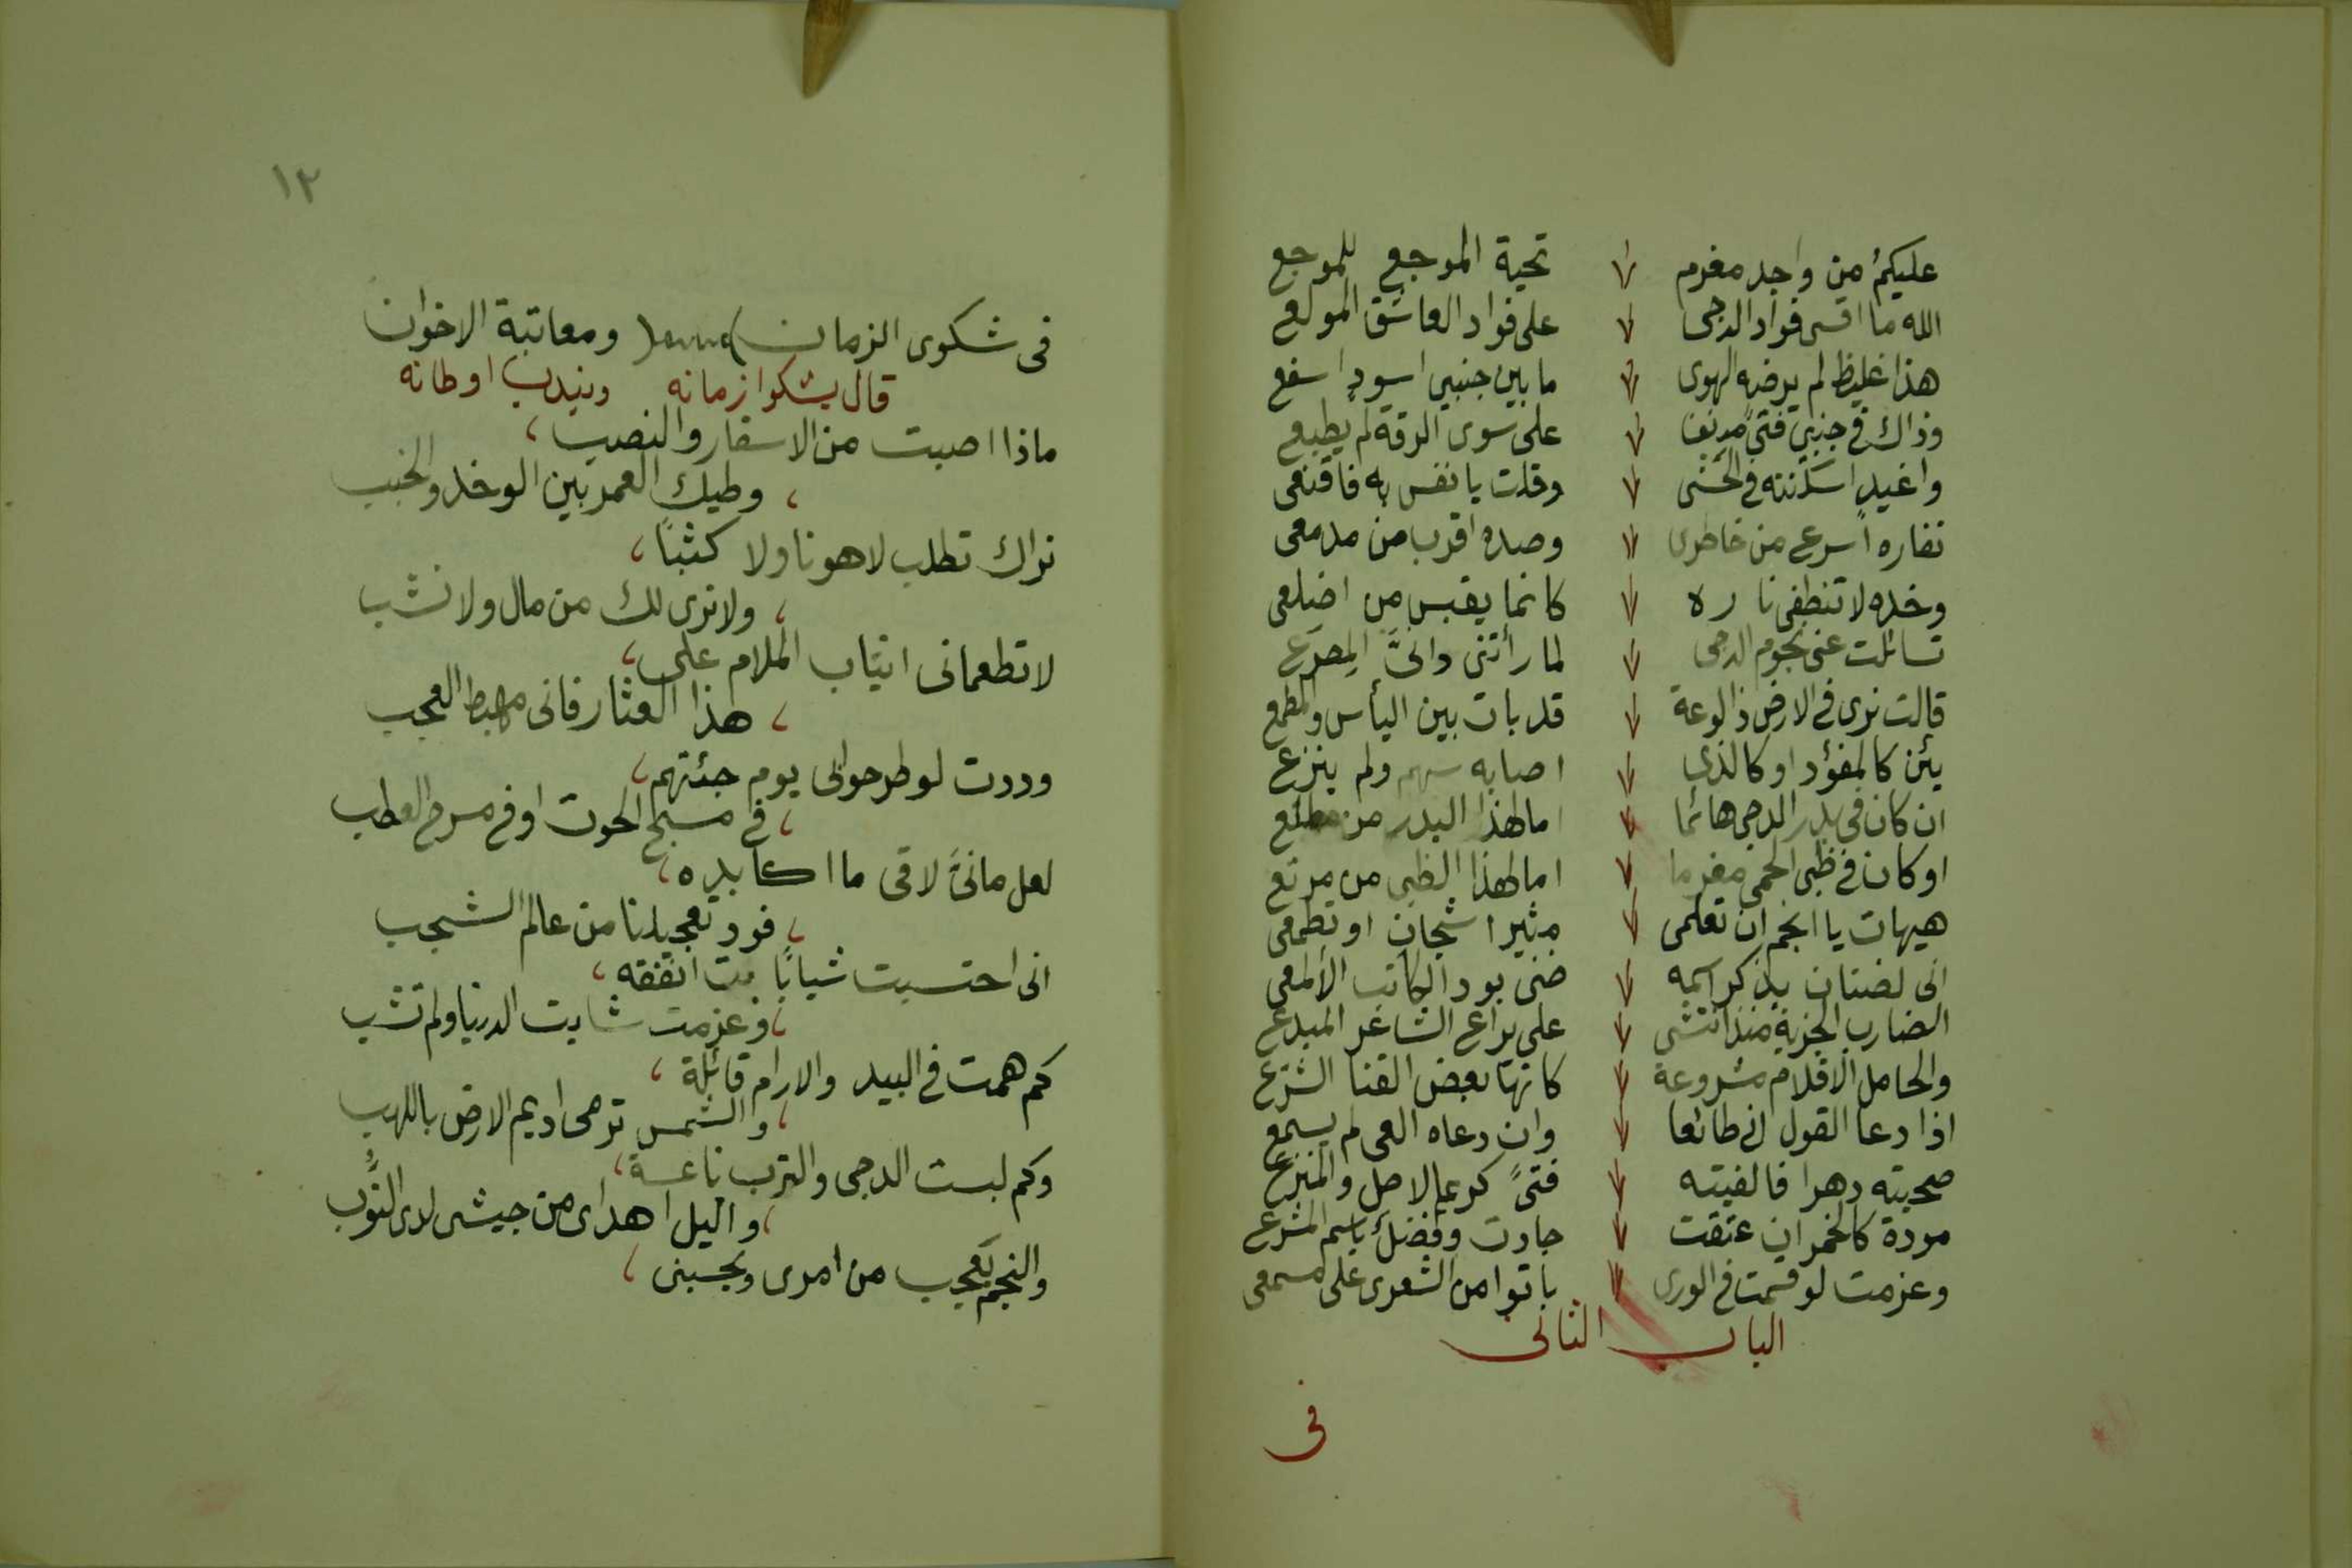 عليكم من واجد مغرم تحية الموجع للموجع
الله ما اقسى فواد الدجى على فواد العاشق المولع
هذا غليظ لم يرضه الهوى ما بين جنبي اسود اسفع
وذاك في جنبي فتى مدنف على سوى الرقة لم يطبع
واغيد اسكنته في الحشى وقلت يا نفس به فاقنعى
نفاره اسرع من خاطرى وصده اقرب من مدمعى
وخده لا تنطفى ناره كانما يقبس من اضلعى
تسائلت عنى نجوم الدجى لما رأتنى دانىَ المصرع
قالت نرى في الارض ذا لوعة قد بات بين اليأس والمطمع
يئن كالمفؤد او كالذى اصابه سهم ولم ينزع
ان كان في بدر الدجى هائما اما لهذا البدر من مطلع
او كان في ظبى الحمى مغرما اما لهذا الظبى من مرتع
هيهات يا انجم ان تعلمى مثير اشجان او تطمعى
انى لضنان بذكر اسمه ضنى بود الكاتب الألمعى
الضارب الجزية منذ انتشى على يراع الشاعر المبدع
والحامل الاقلام مشروعة كانها بعض القنا الشرع
اذا دعا القول اتى طائعا وان دعاه العى لم يسمع
صحبته دهرا فالفيته فتىً كريم الاصل والمنزع
مودة كالخمر ان عتقت جادت وفضل باسم المشرع
وعزمت لو قسمت في الورى باتوا من الشعرى على مسمعى
الباب الثانى
فى
١٢
فى شكوى الزمان ومعاتبة الاخوان
قال يشكوا زمانه ويندب اوطانه
ماذا اصبت من الاسفار والنصب ،
، وطيك العمر بين الوخد والخبب
نراك تطلب لا هونا ولا كثبًا ،
، ولا نرى لك من مال ولا نشب
لا تطعمانى انياب الملام على ،
، هذا العثار فانى مهبط العجب
وددت لو طرحوانى يوم جئتهم ،
، في مسبح الحوت او في مسرح العطب
لعل مانىَ لاقى ما اكابده ،
، فود تعجيلنا من عالم الشجب
انى احتسبت شبابًا بت انفقه ،
، وعزمت شابت الدنيا ولم تشب
كم همت في البيد والارام قائلة ،
، والشمس ترمى اديم الارض باللهب
وكم لبست الدجى والترب ناعسة ،
، واليل اهدأى من جيشى لدى النوب
والنجم يعجب من امرى ويحسبنى ،